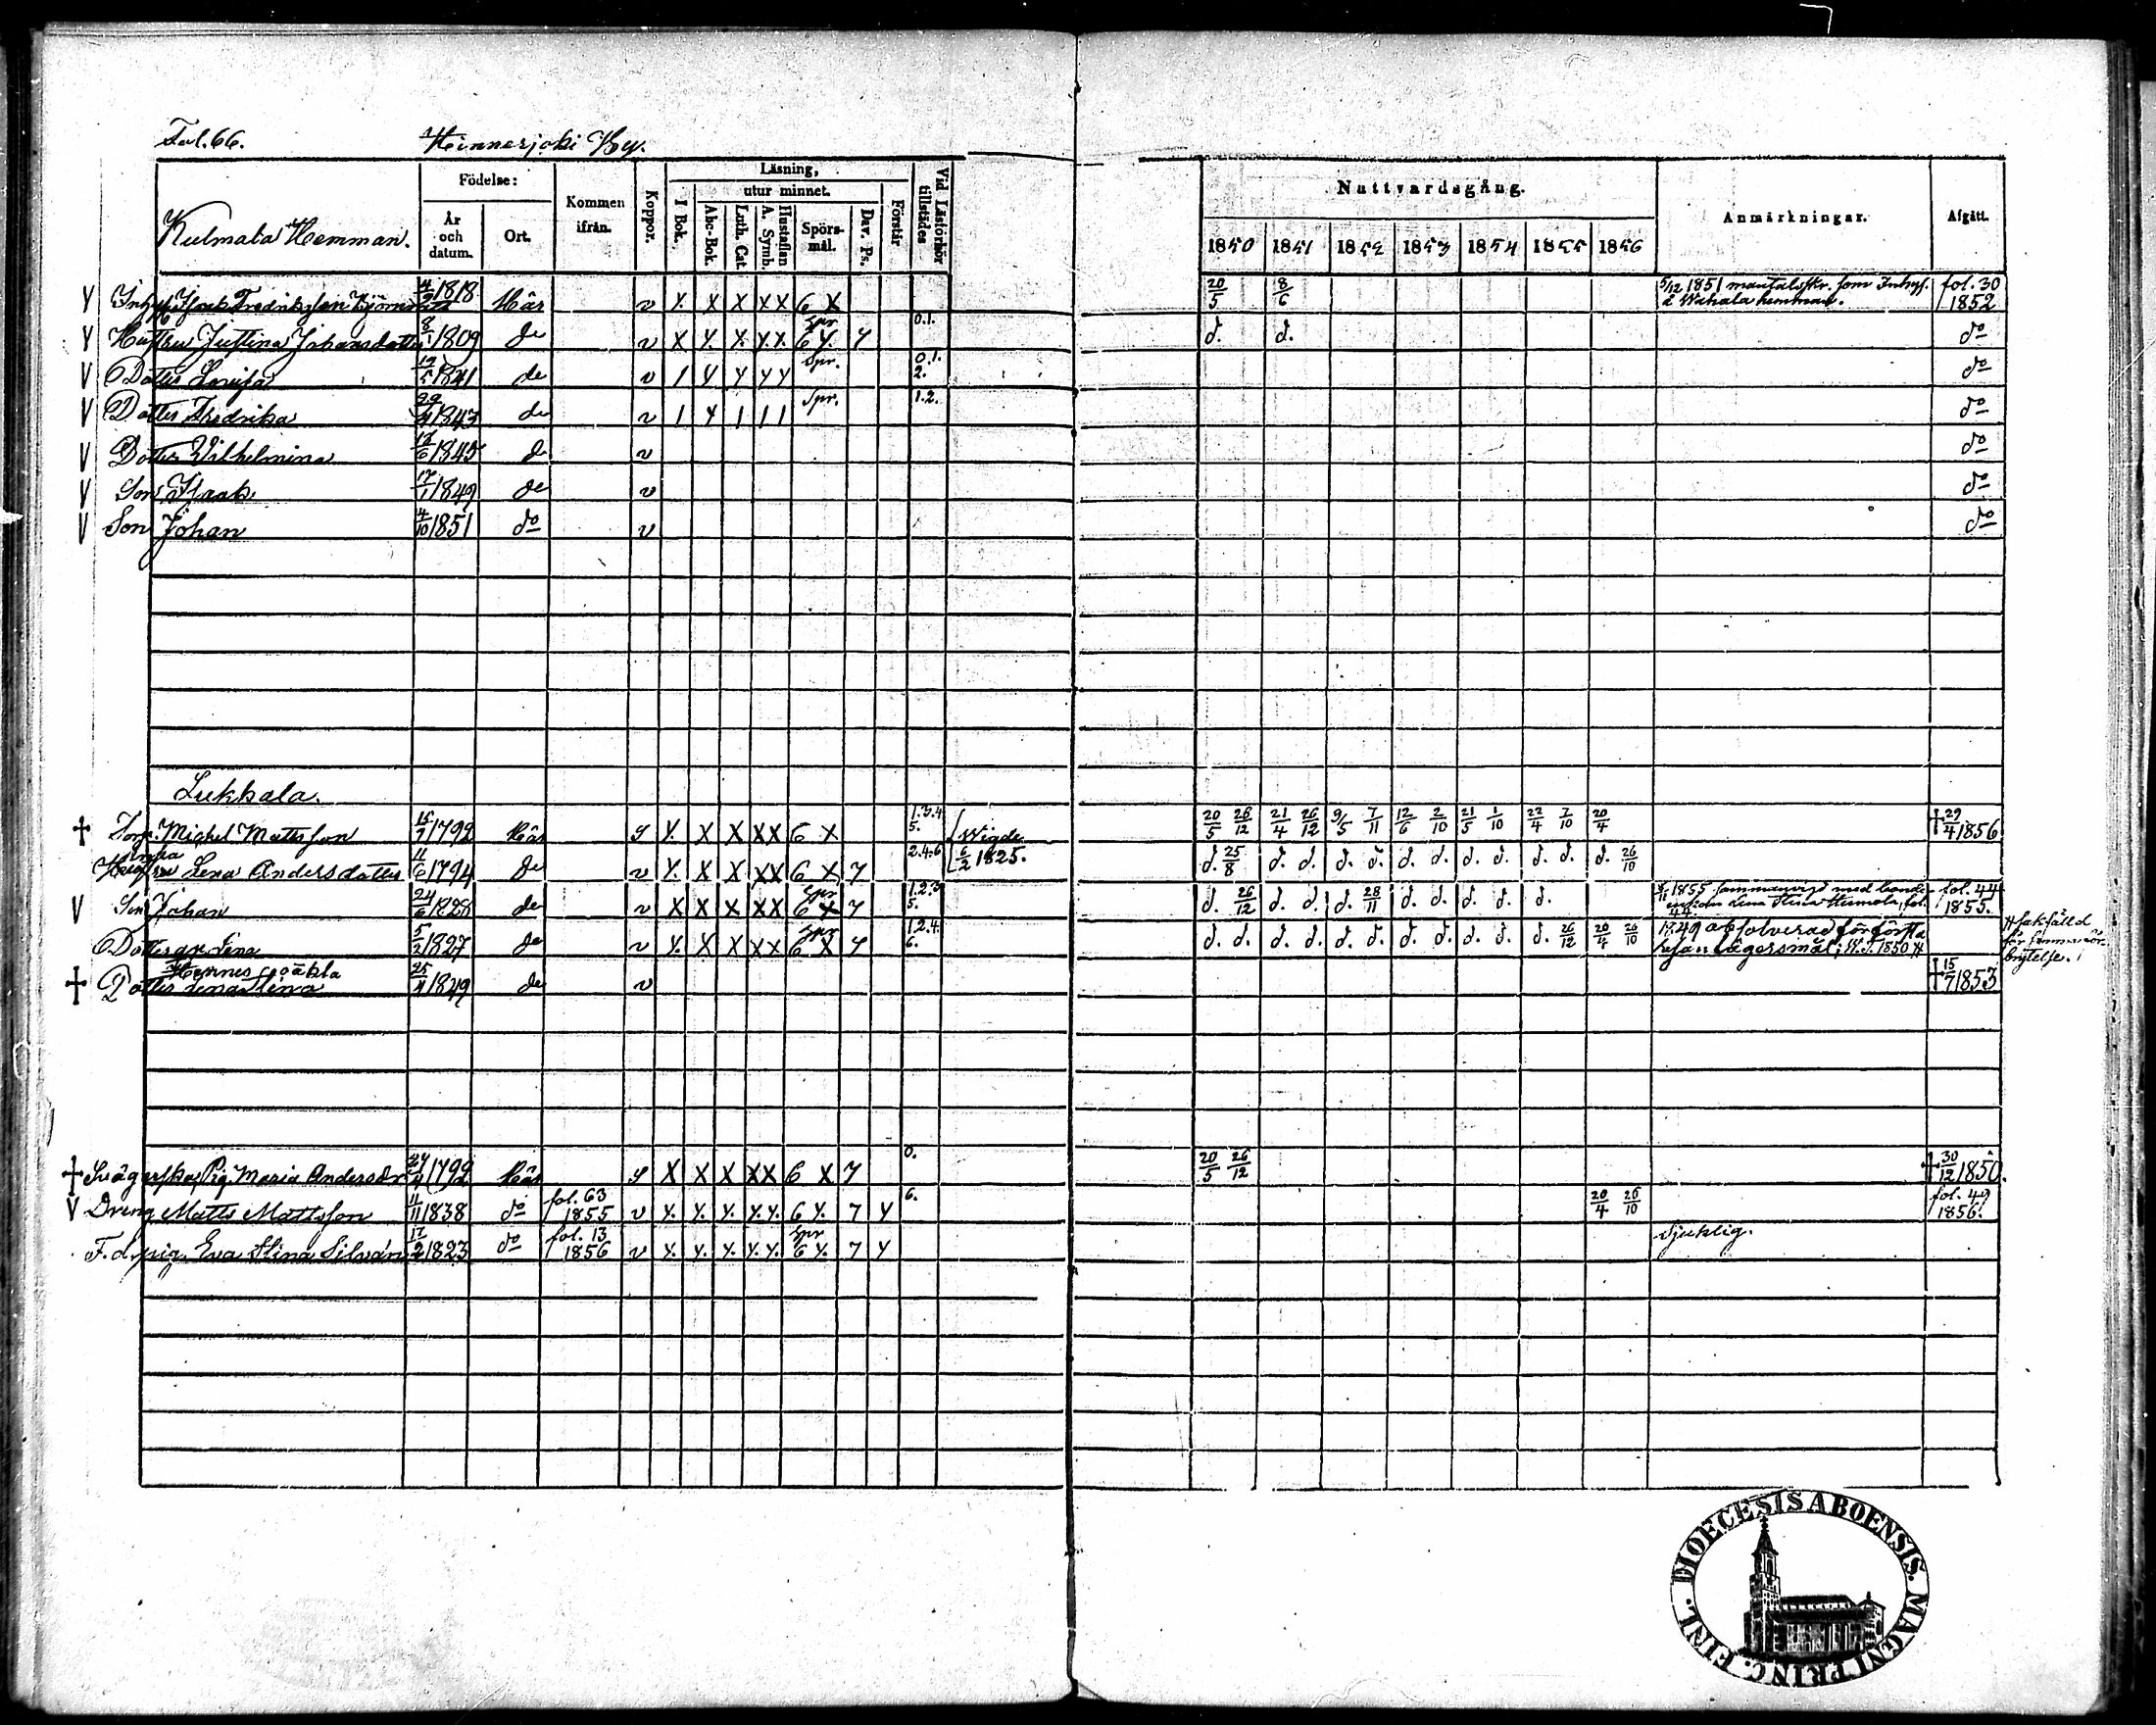 Fol. 66. Hinnerjoki By.
Kulmala Hemman.
Födelse:
År och datum.
Ort.
Kommen ifrån.
Koppor.
Läsning,
I Bok.
utur minnet.
Abc-Bok.
Luth. Cat.
A. Symb. Hustaflan
Spörsmål.
Dav. Ps.
Förstår
Vid Läsförhör tillstädes
Nattvardsgång.
1850 1851 1852 1853 1854 1855 1856
Anmärkningar.
Afgått.
V Isaak Fredriksson 1818 Här v 6 X 20/5 8/6 5/12 1851 mantalskr. som Inhys. å Wahala hemman. fol. 30 1852
V Hustru Justina Johansdotter 1809 do v X 6 Spr 7 0.1. d. d. do
V Dotter Lovisa 12/5 1841 do v Spr. 0.1. 2. do
V Dotter Fredrika 29/4 1843 do v Spr. 1.2. do
V Dotter Vilhelmina 12/6 1845 do v do
V Son Isaak 17/1 1849 do v do
V Son Johan 4/10 1851 do v do
Lukkala.
† Torp. Michel Mattsson 15/7 1792 Här X X XX 6 X 1.3.4 5. Wigde 6/2 1825. 20/5 26/12 21/4 26/12 9/5 7/11 12/6 2/10 21/5 1/10 22/4 7/10 20/4 † 29/4 1856
Enka Lena Andersdotter 11/6 1794 do v X X XX 6 X 7 2.4.6 d. 25/8 d. d. d. d. d. d. d. d. d. d. d. 26/10
V Son Johan 24/6 1828 do v X X X XX 6 Spr X 7 1.2.3 5. d. 26/12 d. d. d. 28/11 d. d. d. d. d. 1855 sammanvigd med bonde enkan Lena Stina fol. 44. fol. 44 1855.
Dotter Lina 5/2 1827 do v X X XX 6 Spr X 7 1.2.4. 6. d. d. d. d. d. d. d. d. d. d. d. 26/12 20/4 26/10 1849 absolverad för första resan lägersmål; 1850 # # sakfälld för brytelse.
Hennes oäkta
† Dotter Lena Stina 25/4 1849 do v † 15/7 1853
† Svägerska, Pig. Maria Andersdr 24/4 1792 Här X X X XX 6 X 7 0. 20/5 26/12 † 30/12 1850.
V Dreng Matts Mattsson 11/11 1838 do fol. 63 1855 v 6 7 6. 20/4 26/10 fol. 49 1856.
F.d. pig. Eva Stina Silván 17/2 1823 do fol. 13 1856 v Spr 6 7 Sjuklig.
DIOECESIS ABOENSIS. MAGNI PRINC. FINL.